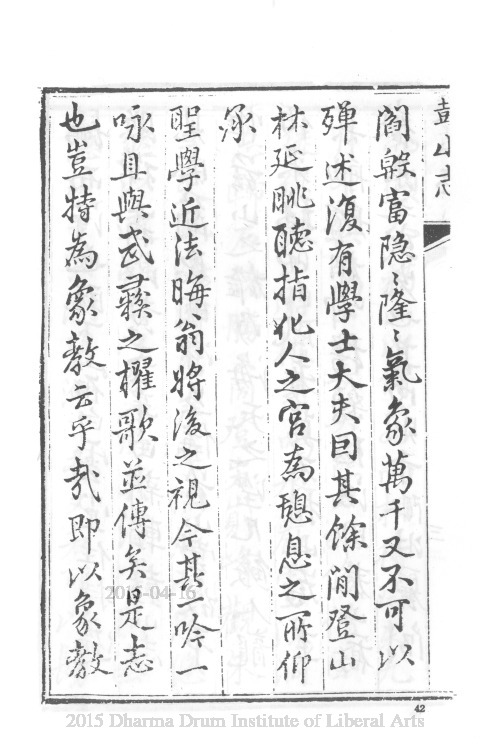 山志
閻殷富隐〻隆〻氣象萬千又不可以
殫述復有學士大夫因其餘閒登山
林延眺聽指化人之宮為憩息之所仰
承
聖學近法晦翁將後之視今其一吟一
咏且與武彝之櫂歌並傳矣是志
也豈特為象教云乎哉即以象教
2015-04-16
42
2015 Dharma Drum Institute of Liberal Arts